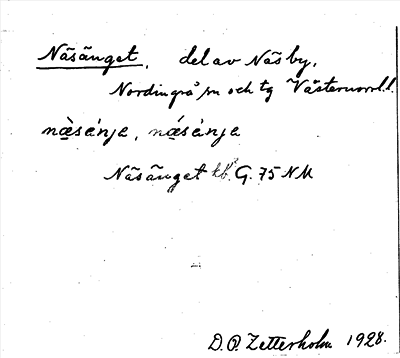 Näsänget, del av Näsby,
Nordingrå sn och tg Västernorrl.l.
næ̀sènje, nǽsènje
Näsänget kb. G. 75 NM
D. O. Zetterholm 1928.